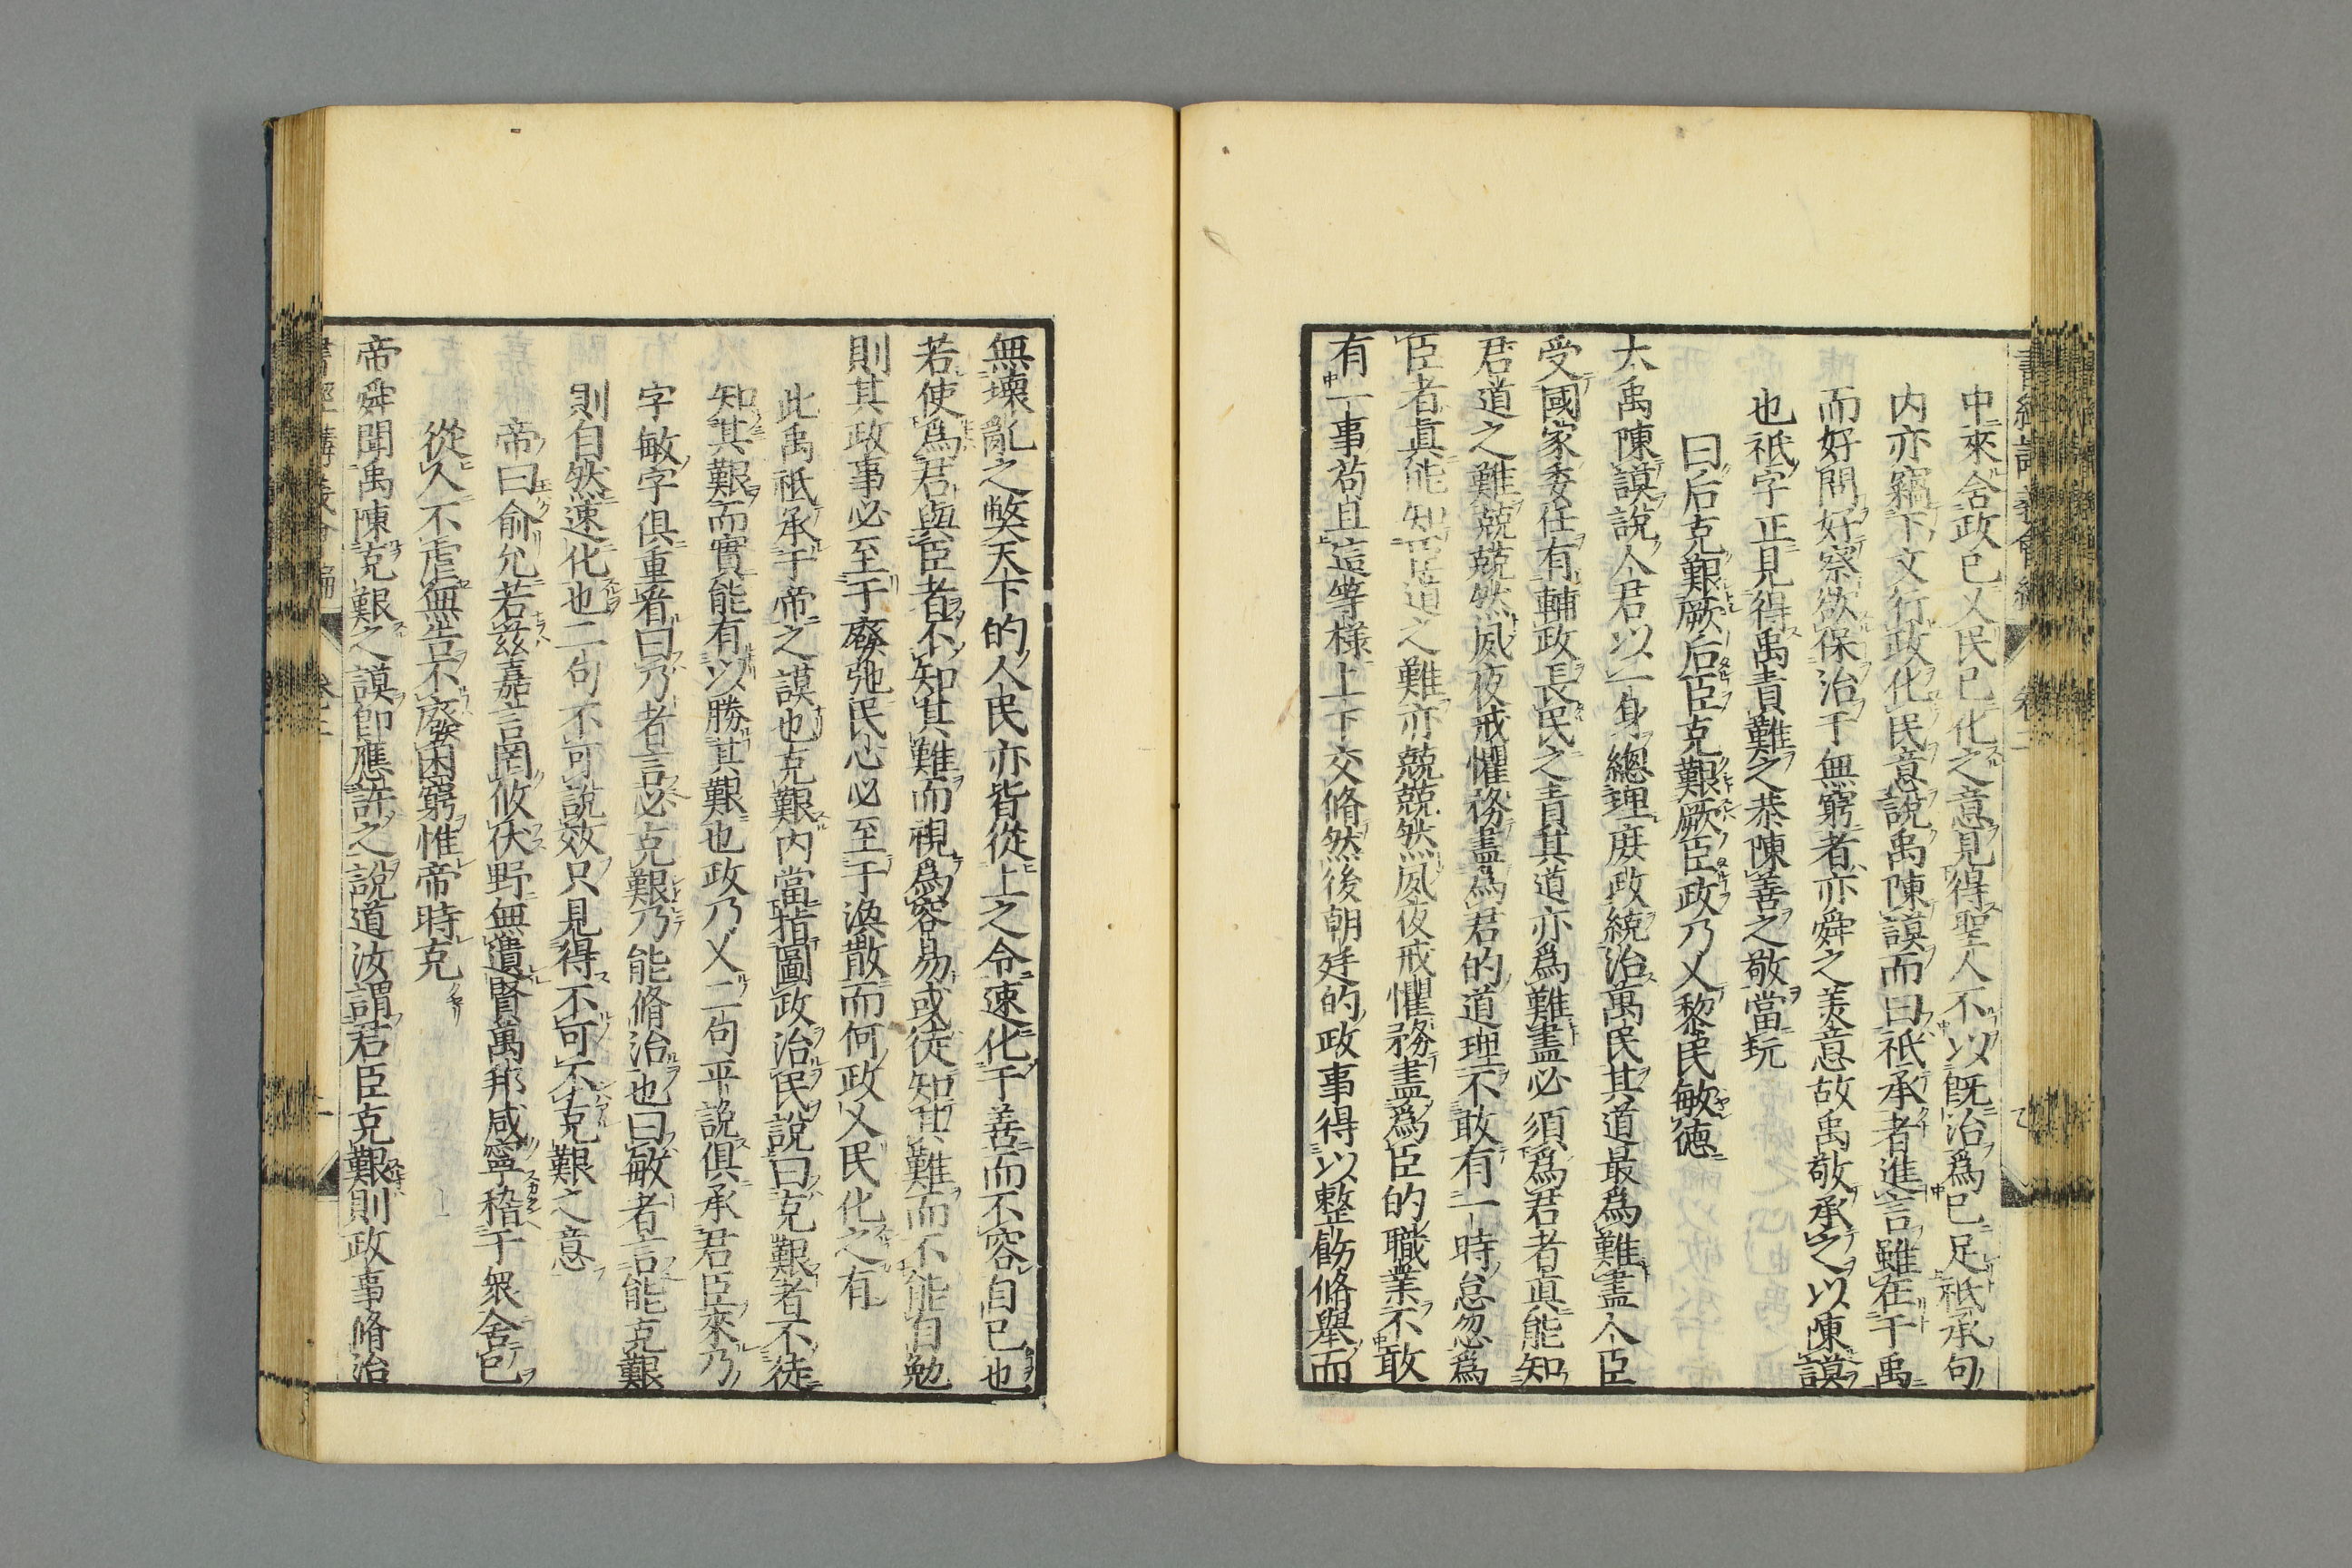 中來舍政已乂民已化之意見得聖人不以旣治爲已足祇承句
内亦竊下文行政化民意說禹陳謨而曰祇承者進言雖在于禹
而好問好察欲保治于無窮者亦舜之美意故禹敬承之以陳謨
也祇字正見得禹責難之恭陳善之敬當玩
曰后克艱厥后臣克艱厥臣政乃乂黎民敏德
大禹陳謨說人君以一身總理庶政統治萬民其道最爲難盡人臣
受國家委任有輔政長民之責其道亦爲難盡必須爲君者眞能知
君道之難兢兢然夙夜戒懼務盡爲君的道理不敢有一時怠忽爲
臣者眞能知臣道之難亦兢兢然夙夜戒懼務盡爲臣的職業不敢
有一事苟且這等樣上下交脩然後朝廷的政事得以整飭脩舉而
無壞亂之弊天下的人民亦皆從上之令速化于善而不容自已也
若使爲君與臣者不知其難而視爲容易或徒知其難而不能自勉
則其政事必至于廢弛民心必至于渙散而何政乂民化之有
此禹祇承于帝之謨也克艱内當指圖政治民說曰克艱者不徒
知其艱而實能有以勝其艱也政乃乂二句平說俱承君臣來乃
字敏字俱重看曰乃者言必克艱乃能脩治也曰敏者言能克艱
則自然速化也二句不可說效只見得不可不克艱之意
帝曰俞允若茲嘉言罔攸伏野無遺賢萬邦咸寧稽于衆舍已
從人不虐無告不廢困窮惟帝時克
帝舜聞禹陳克艱之謨卽應許之說道汝謂君臣克艱則政事脩治